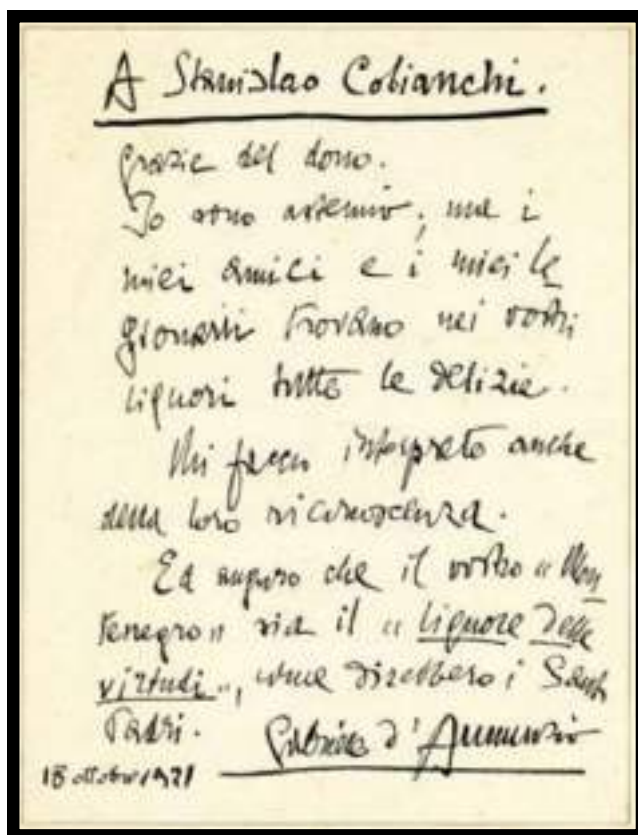 A Stanislao Cobianchi.
Grazie del dono.
Io sono astemio; ma i
miei amici e i miei le
gionarii trovano nei vostri
liquori tutte le delizie.
Mi faccio interprete anche
della loro riconoscenza.
Ed auguro che il vostro « Mon
tenegro » sia il « liquore delle
virtudi », come direbbero i Santi
Padri. Gabriele d'Annunzio
18 ottobre 1921